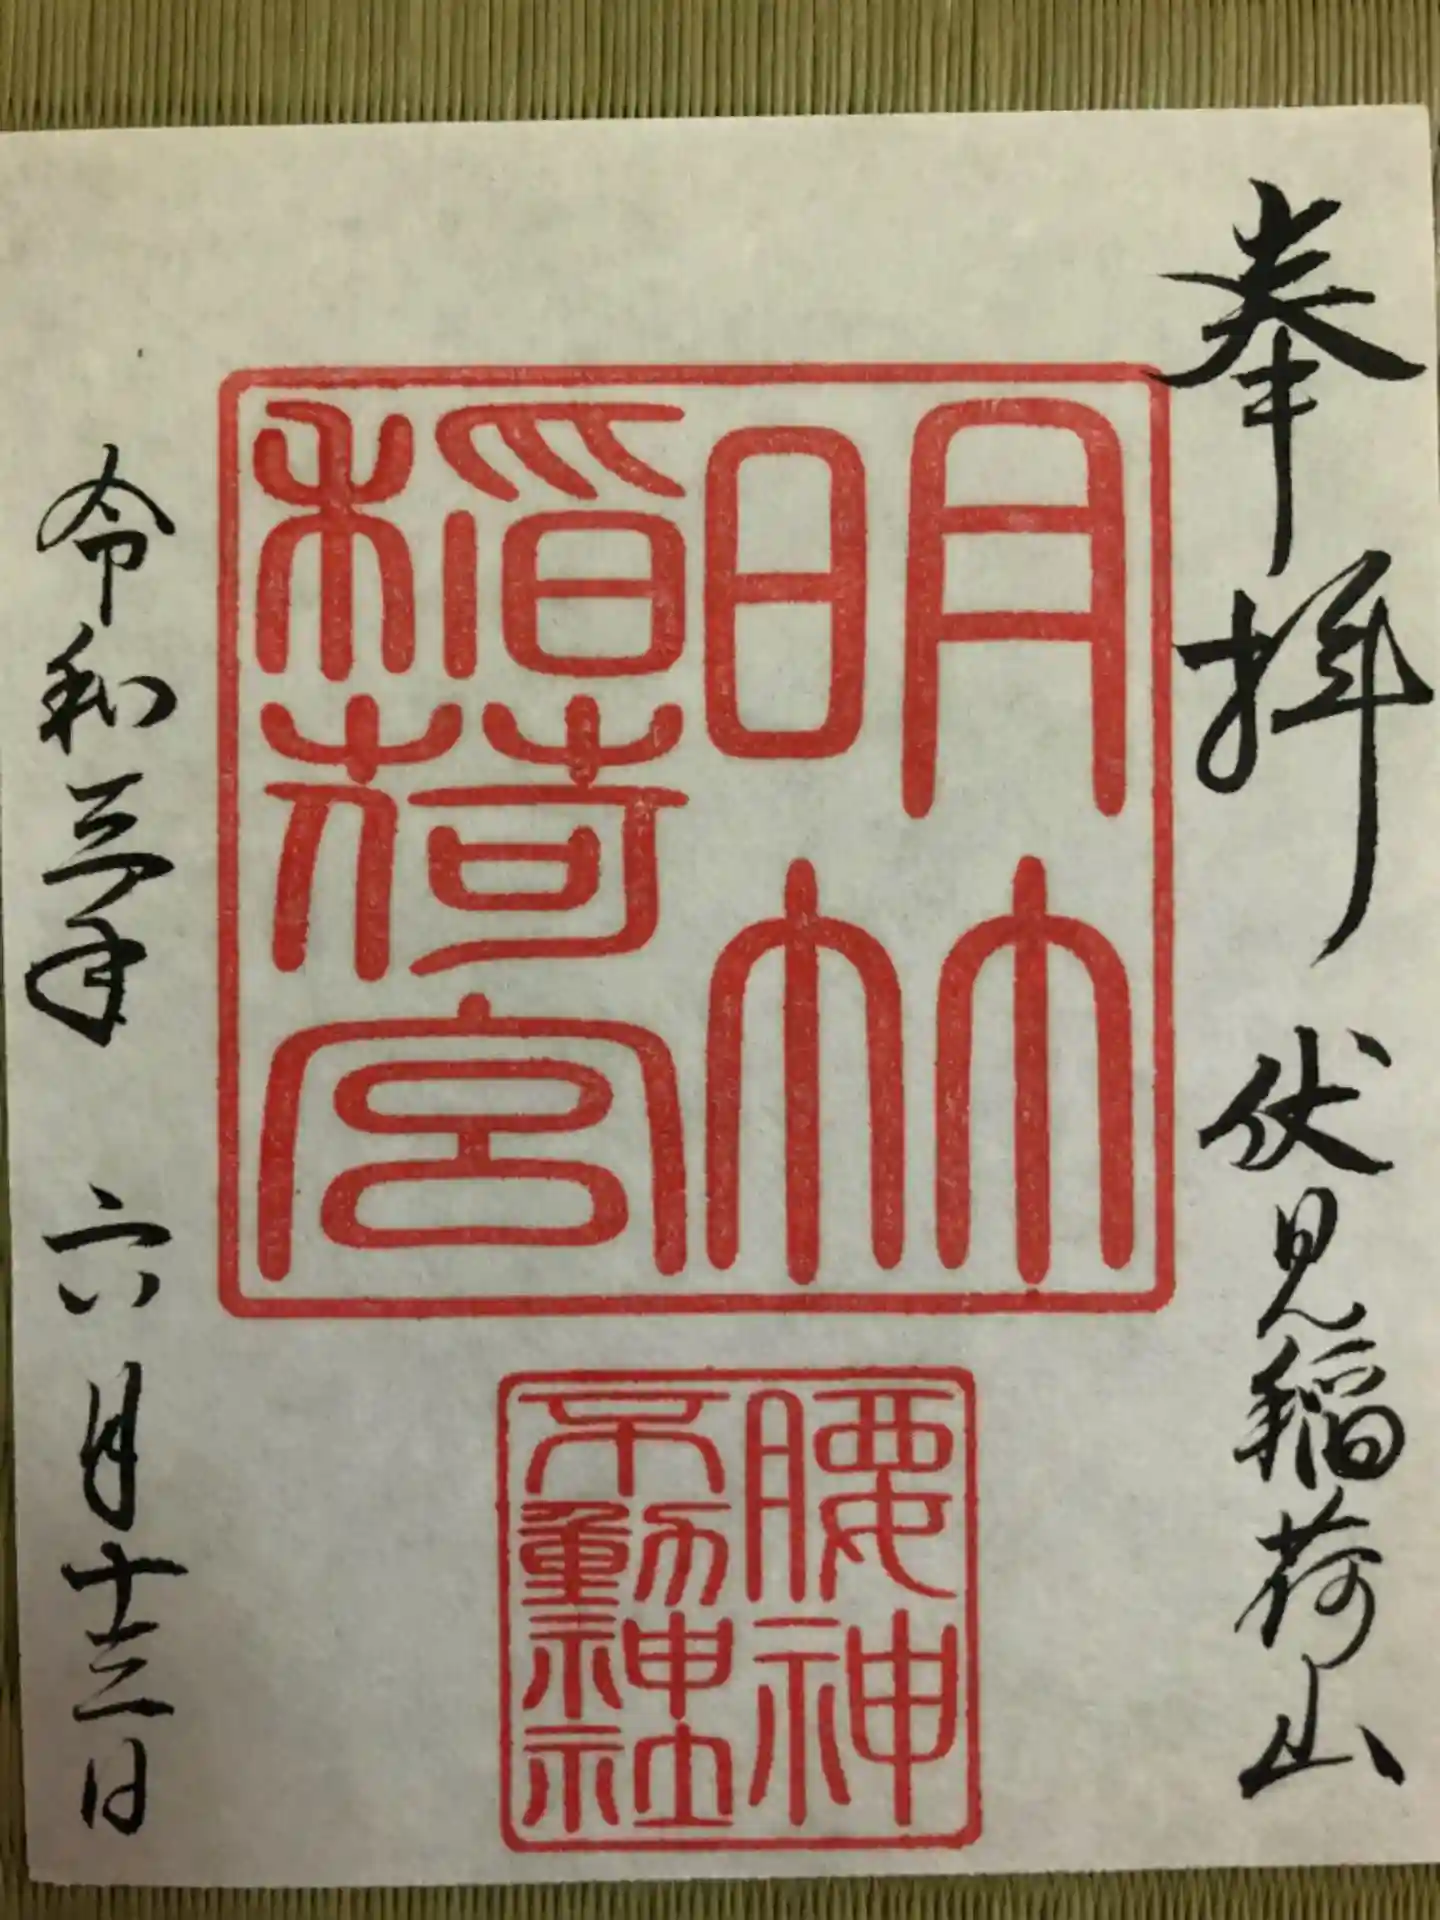 奉拝 伏見稲荷山
明竹
稲荷宮
腰神
不動神社
令和三年 六月十三日